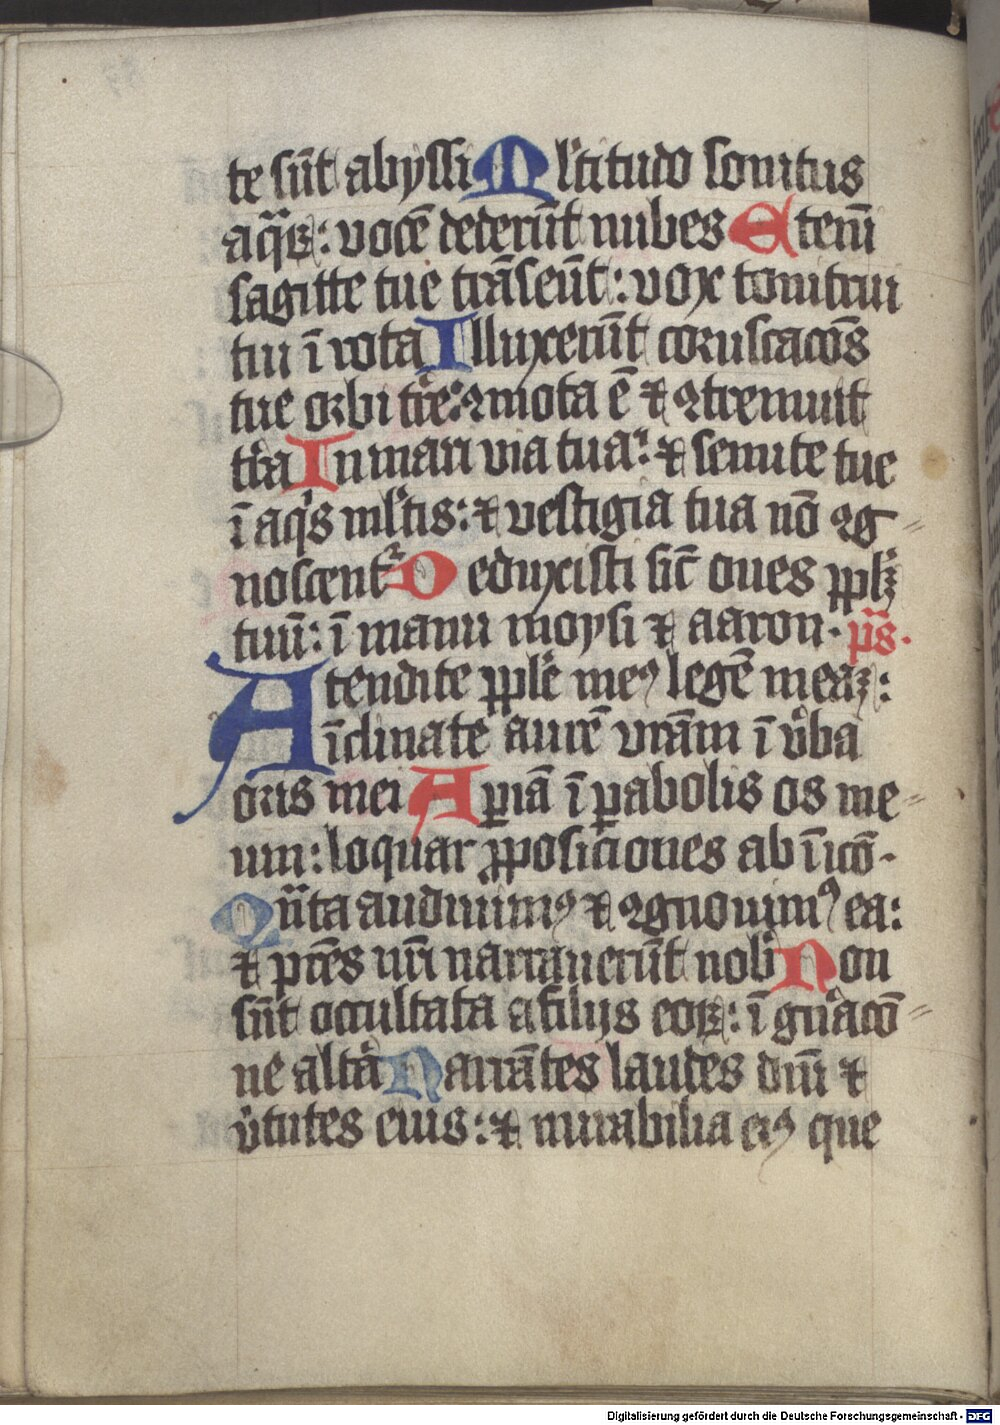 te sūt abyssi Ml̄titudo sonitus
aq̄ꝝ: vocē dederūt nubes Etenī
sagitte tue trāseūt: vox tonitrui
tui ī rota Illuxerūt coruscacōs
tue orbi tr̄re: ꝯmota ē ⁊ ꝯtremuit
tr̄ra In mari via tua: ⁊ semite tue
ī aq̇s ml̄tis: ⁊ vestigia tua nō ꝯg
noscentᷣ Deduxisti sic̄ oues ppl̄ꝫ
tuū: ī manu moysi ⁊ aaron. ps̄.
Atendite pple̅ meꝰ legē meaꝫ:
īclinate aurē vrām ī v̄ba
oris mei Aꝑiā ī ꝑabolis os me
um: loquar ꝓposiciones ab īicō.
Qn̄ta audiuimꝰ ⁊ ꝯgnouimꝰ ea:
⁊ pr̄es nr̄i narrauerūt nob̄ Non
sūt occultata a filijs eoꝝ: ī gn̄acō
ne alt̄a Narrātes laudes dn̄i ⁊
v̄tutes eius: ⁊ mirabilia eiꝰ que
Digitalisierung gefördert durch die Deutsche Forschungsgemeinschaft - DFG